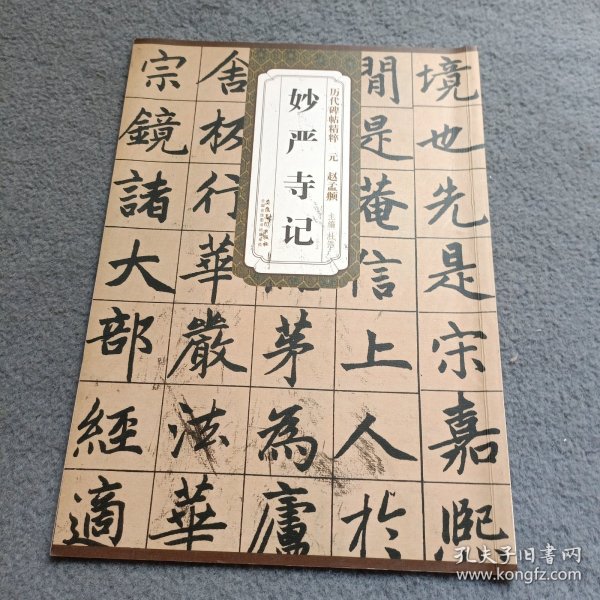 历代碑帖精粹 元 赵孟頫
主编
妙严寺记
安徽美术出版社
境也先是宋嘉熙
間是菴信上人於
茅為廬
舍板行華嚴法華
宗鏡諸大部經適
孔夫子旧书网
www.kongfz.com